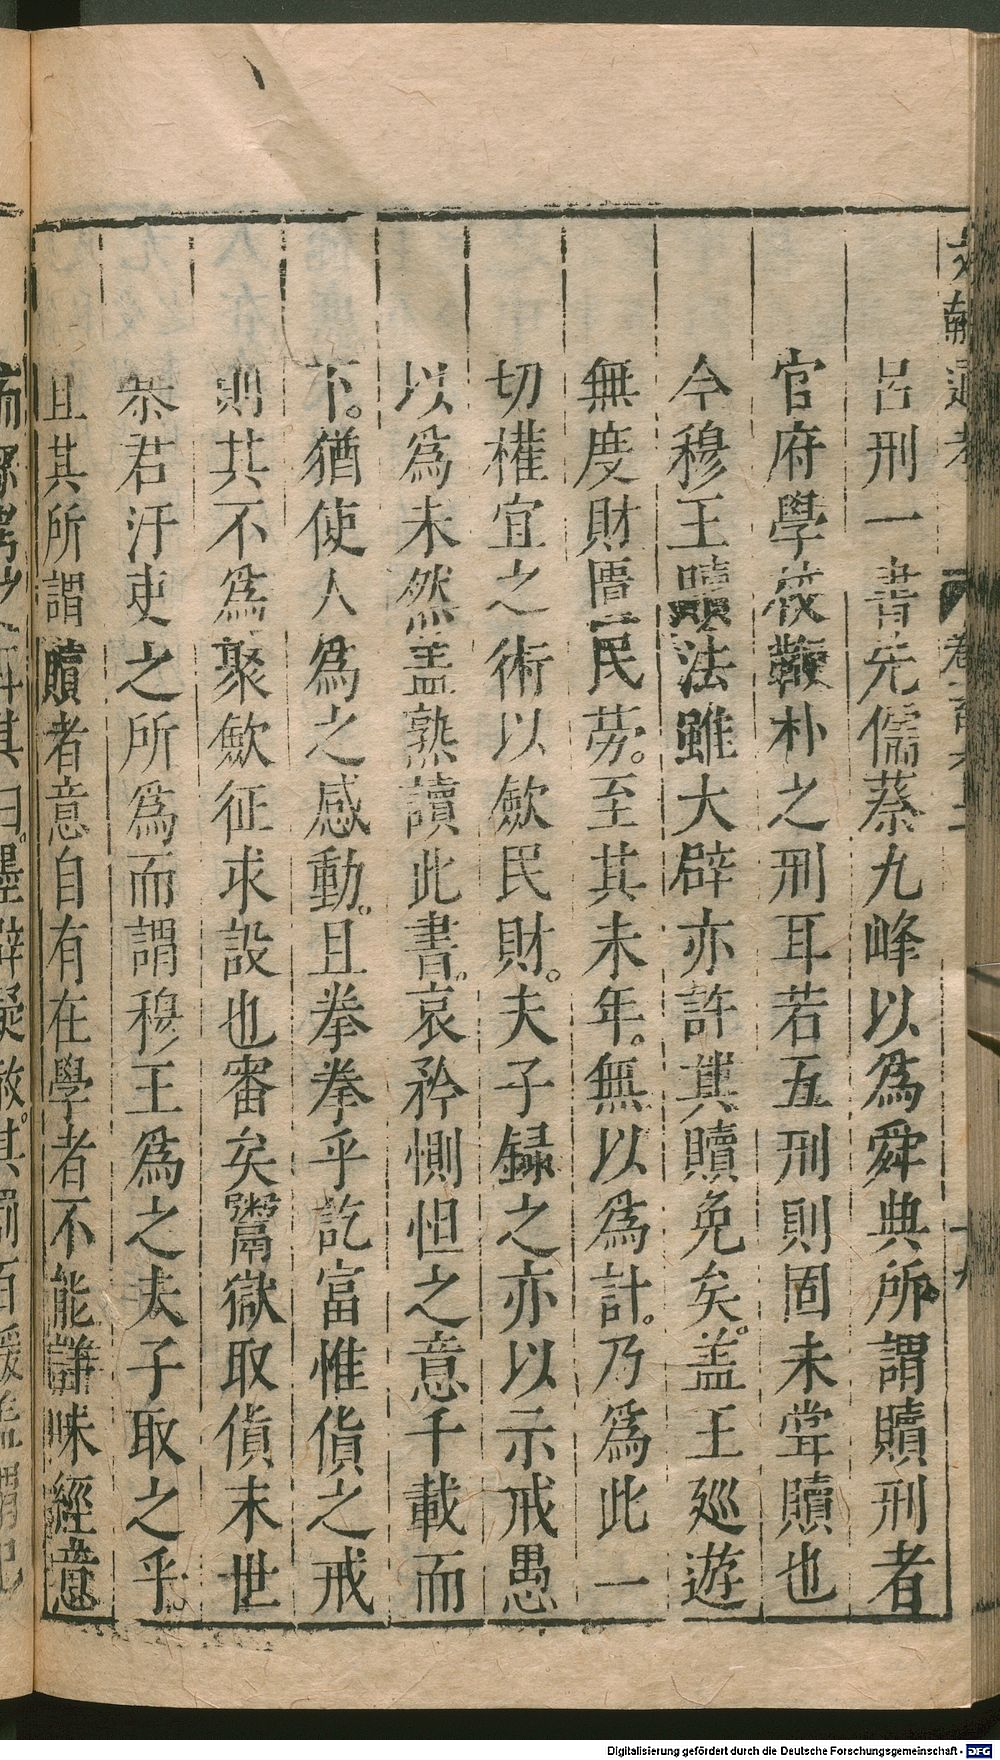 呂刑一書先儒蔡九峰以爲舜典所謂贖刑者
官府學校鞭朴之刑耳若五刑則固未甞贖也
今穆王贖法雖大辟亦許其贖免矣。盖王廵遊
無度財匱民劳。至其末年。無以爲計。乃爲此一
切權宜之術以斂民財。夫子録之亦以示戒愚
以爲未然盖熟讀此書。哀矜惻怛之意千載而
下。猶使人爲之感動。且拳拳乎訖富惟貨之戒
則其不爲聚斂征求設也審矣鬻獄取貨末世
暴君汙吏之所爲而謂穆王爲之夫子取之乎
且其所謂贖者意自有在學者不能詳味經意
Digitalisierung gefördert durch die Deutsche Forschungsgemeinschaft - DFG